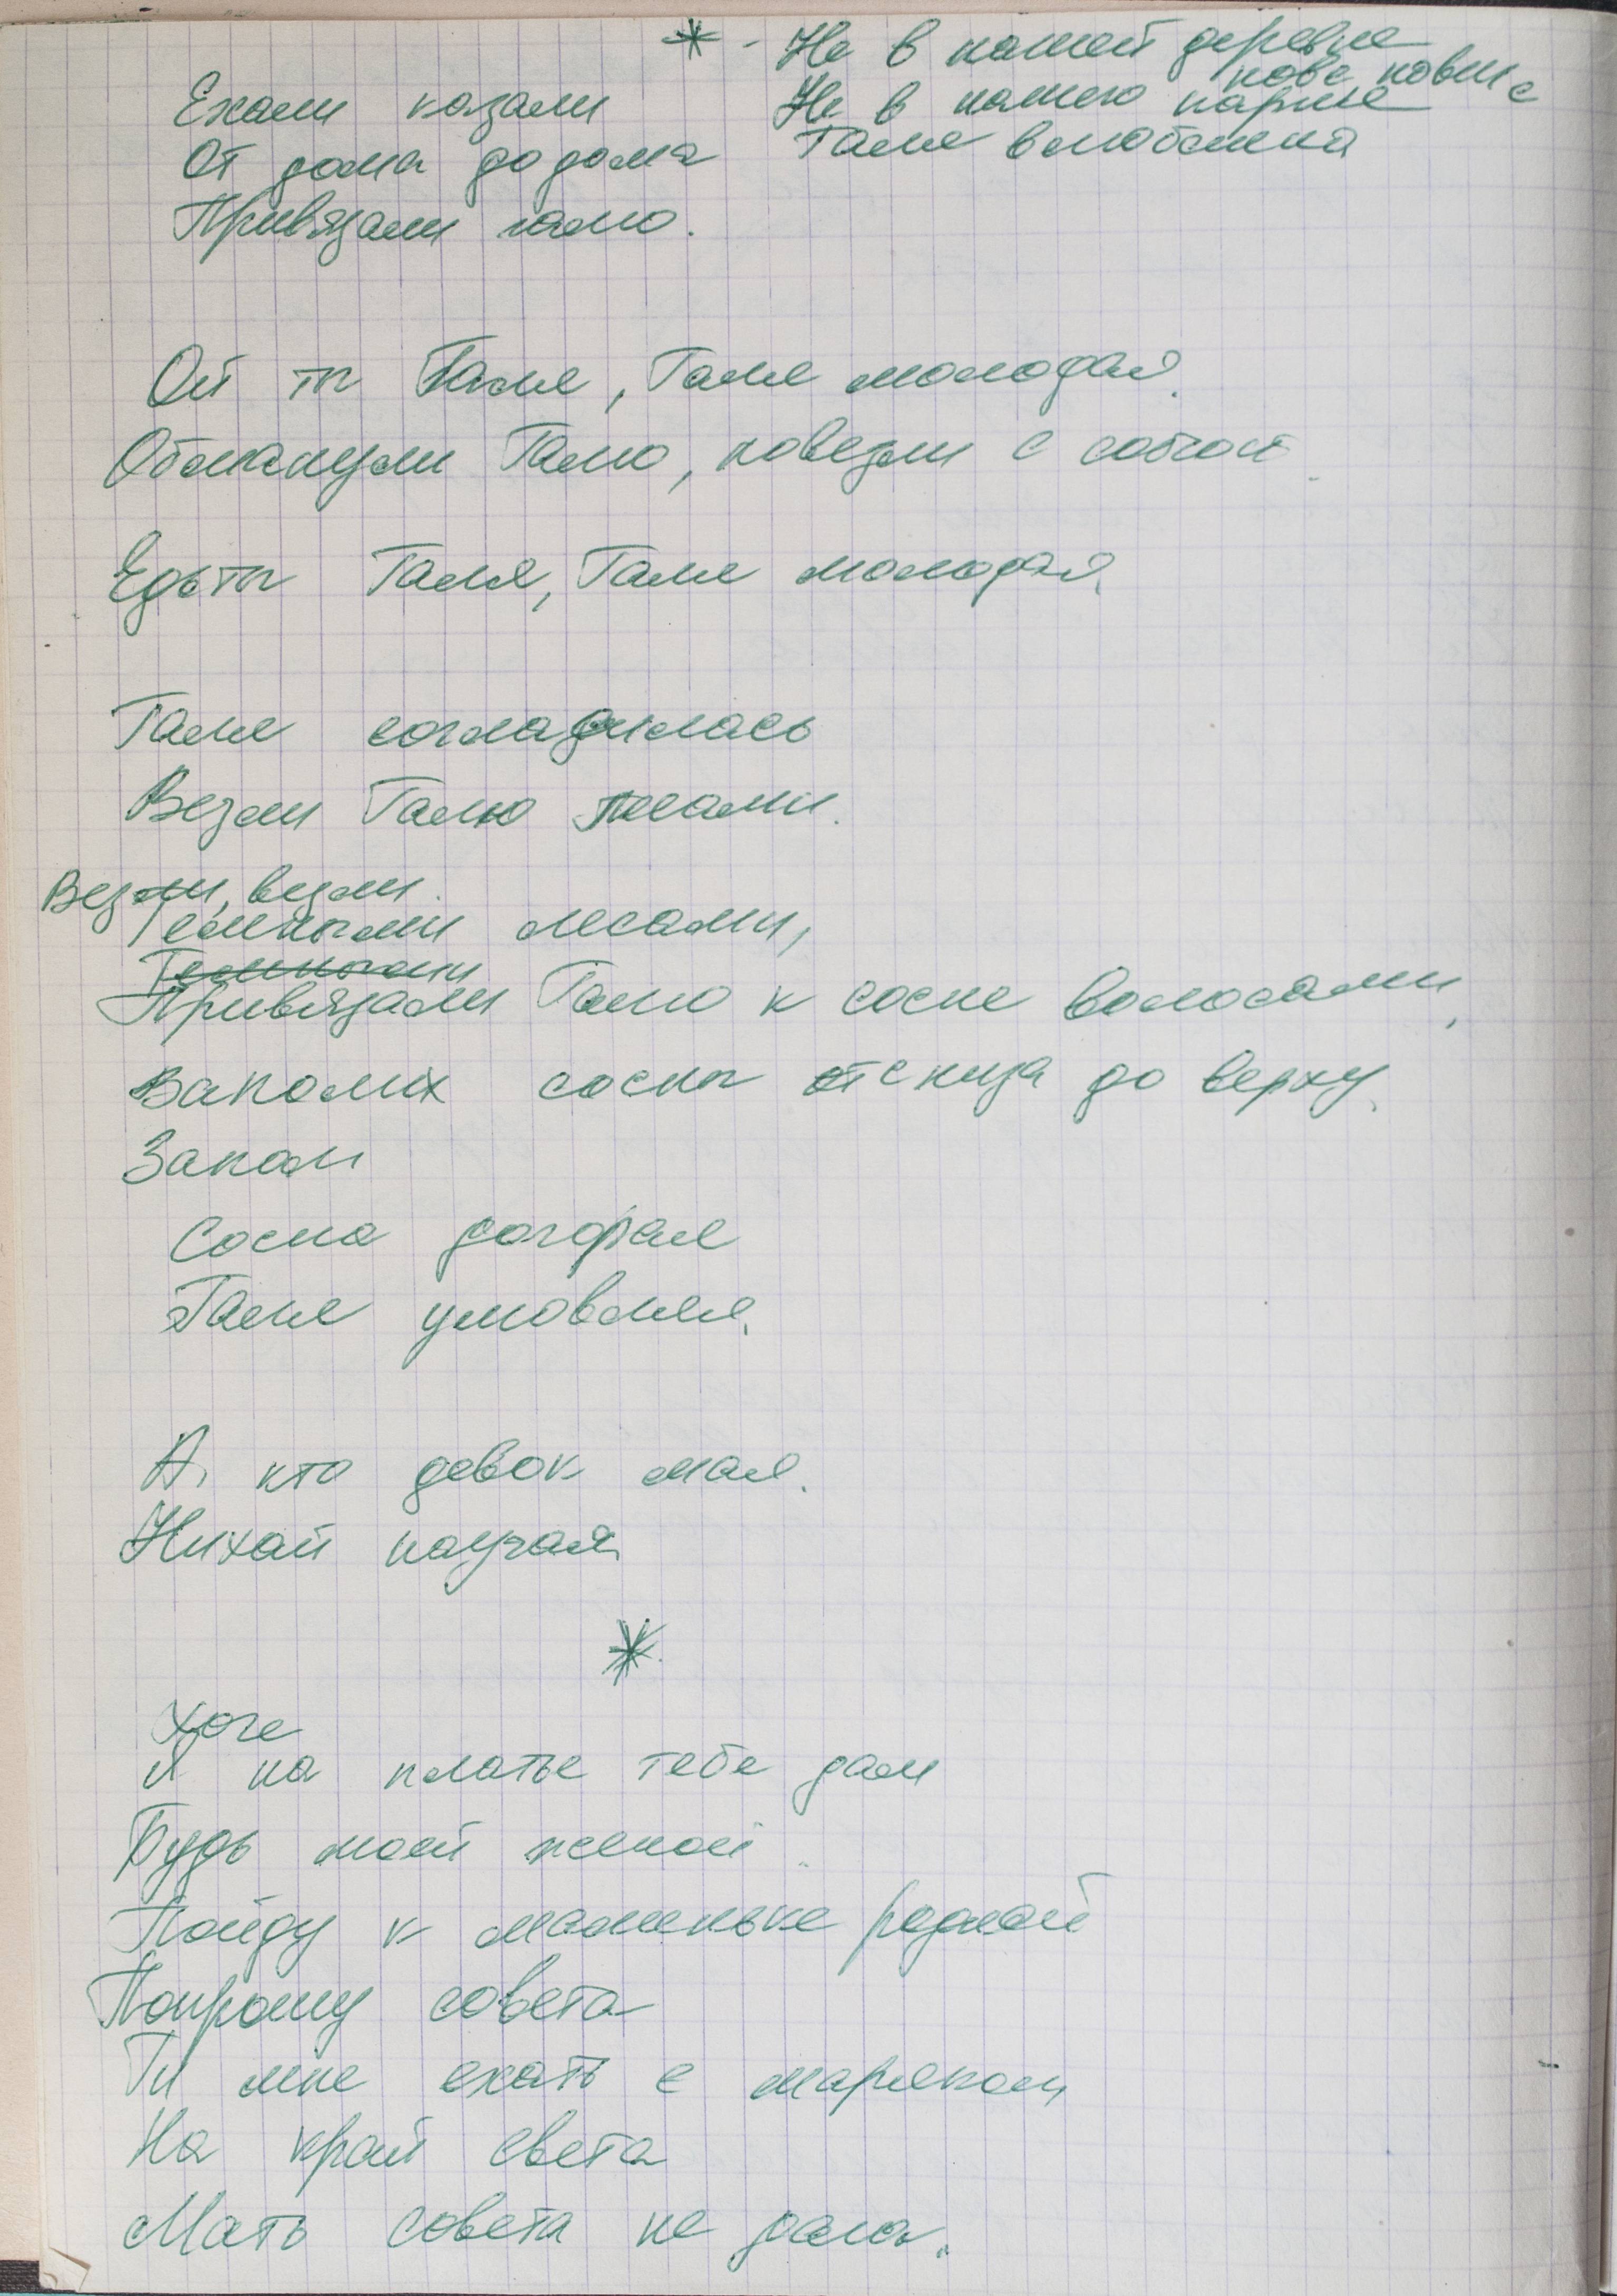 * - Не в нашей деревне
Ехали казали
Не в нашего парня
От дома до дома
Галя влюблена
Привязали галю.
Ой ты Галя, Галя молодая.
Обманули Галю, повезли с собой.
Едь ты Галя, Галя молодая,
Галя согладилась
Везли Галю лесами.
Везли, везли.
Темными лесами,
Темными
Привязали Галю к сосне волосами,
сосны от снизу до верху.
Запали
Сосна догорая
Галя умовляя.
А, кто девок мая.
Нихай научая
*
Хоче
И на платье тебе дам
Будь моей женой.
Пойду к маменьке родной
Попрошу совета
Ти мне ехать с маряком
На край света
Мать совета не дала.